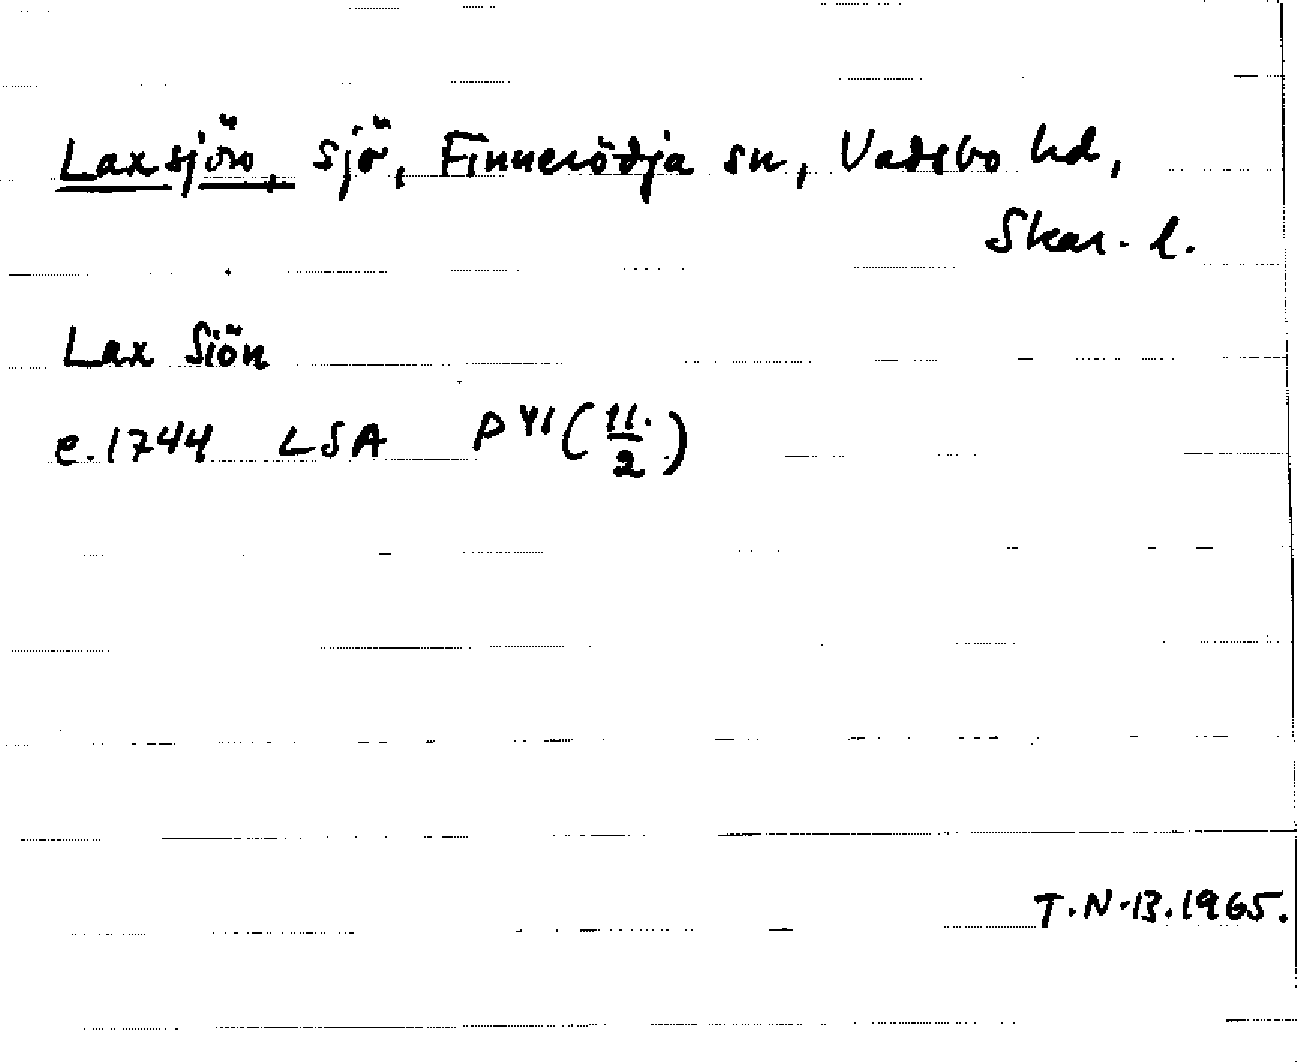 Laxsjön, sjö, Finnerödja sn, Vadsbo hd,
Skar. l.
Lax Siön
e. 1744 LSA P 41 (11./2)
T.N-B. 1965.